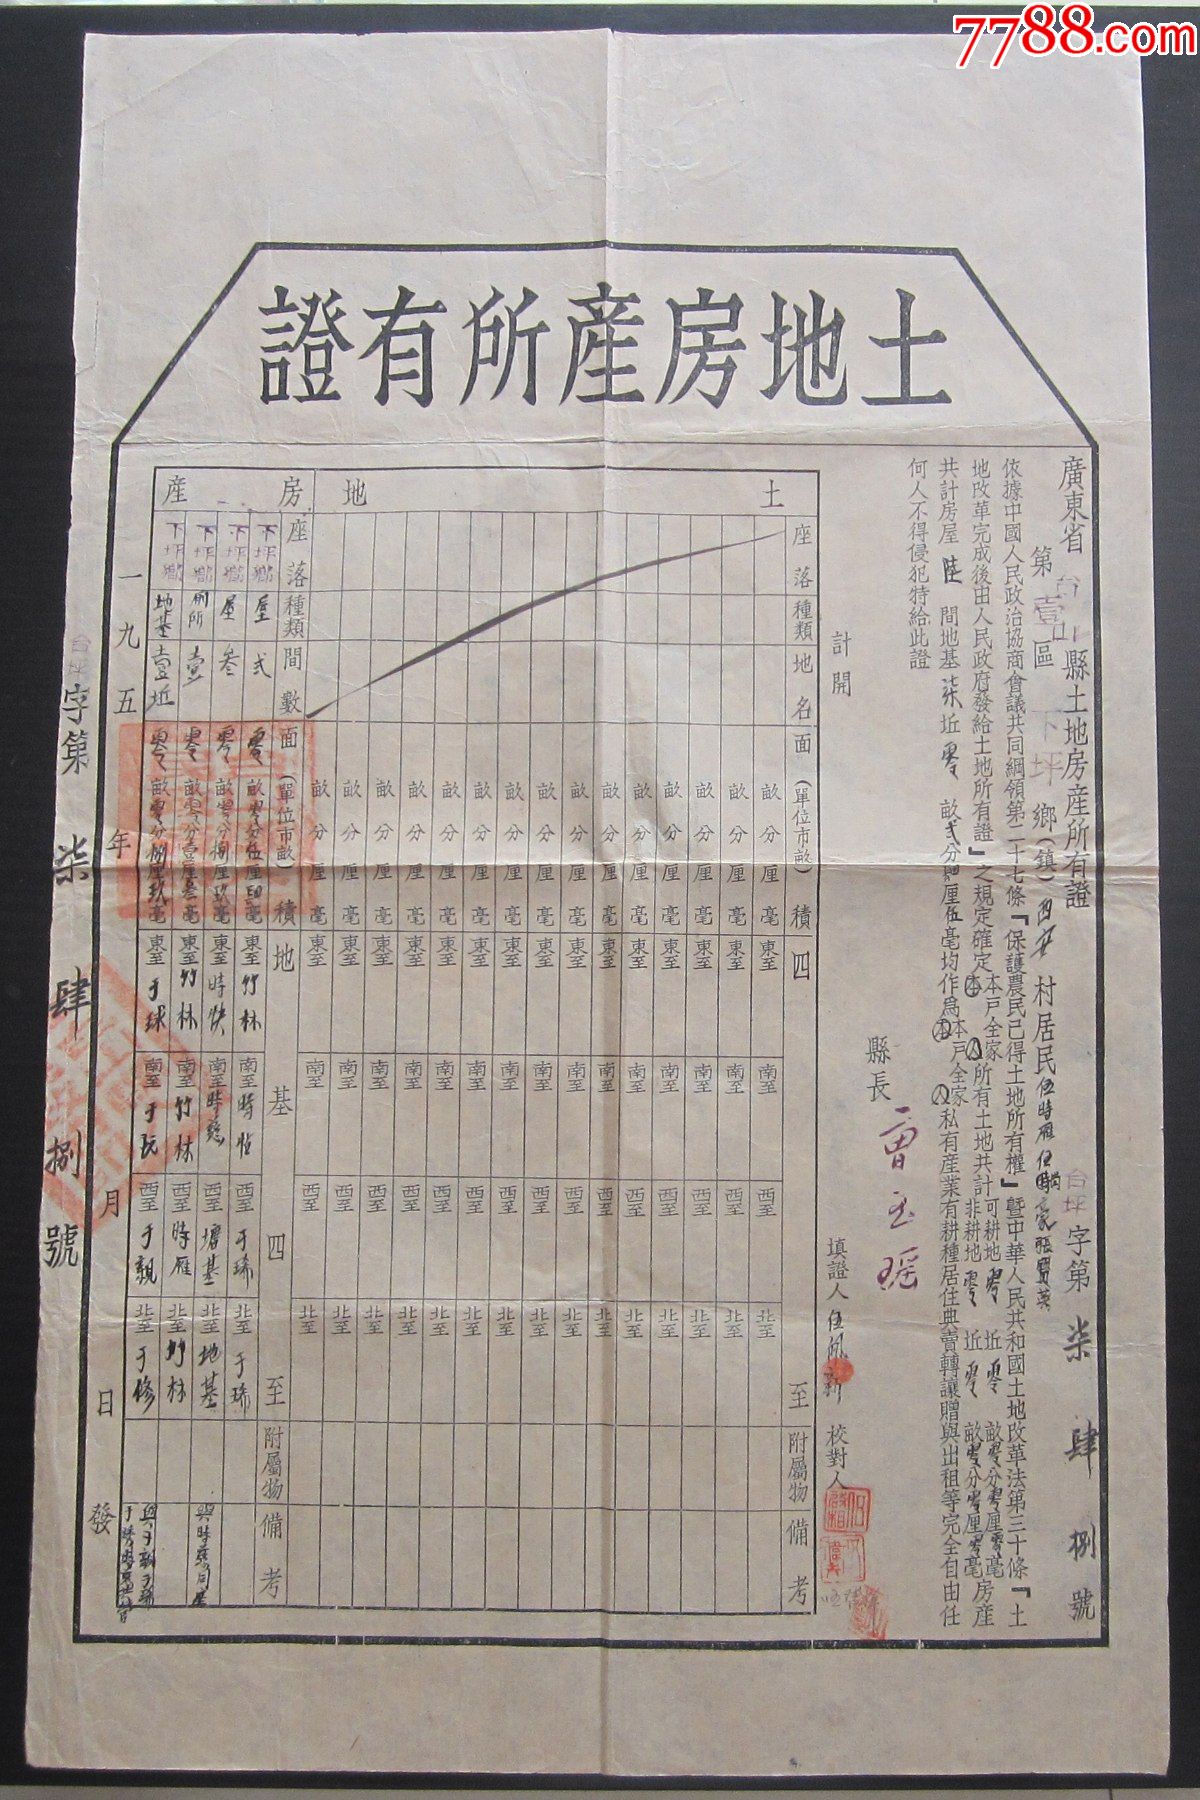 7788.com
土地房產所有證
廣東省台山縣土地房產所有證 台坪字第柒肆捌號
第壹區下坪鄉(鎮)西安村居民伍時雁
依據中國人民政治協商會議共同綱領第二十七條「保護農民已得土地所有權」暨中華人民共和國土地改革法第三十條「土
地改革完成後由人民政府發給土地所有證」之規定確定本戶全家本人所有土地共計可耕地零坵零畝零分零厘零毫非耕地零坵零畝零分零厘零毫房產
共計房屋陸間地基柒坵零畝弍分厘伍毫均作爲本戶全家本人私有產業有耕種居住典賣轉讓贈與出租等完全自由任
何人不得侵犯特給此證
縣長
計開
填證人 校對人
土地
座落 種類 地名 面積(單位市畝) 四至 附屬物 備考
畝分厘毫 東至 南至 西至 北至
畝分厘毫 東至 南至 西至 北至
畝分厘毫 東至 南至 西至 北至
畝分厘毫 東至 南至 西至 北至
畝分厘毫 東至 南至 西至 北至
畝分厘毫 東至 南至 西至 北至
畝分厘毫 東至 南至 西至 北至
畝分厘毫 東至 南至 西至 北至
畝分厘毫 東至 南至 西至 北至
畝分厘毫 東至 南至 西至 北至
畝分厘毫 東至 南至 西至 北至
畝分厘毫 東至 南至 西至 北至
畝分厘毫 東至 南至 西至 北至
畝分厘毫 東至 南至 西至 北至
畝分厘毫 東至 南至 西至 北至
房產
座落 種類 間數 面積(單位市畝) 地基四至 附屬物 備考
下坪鄉 屋 弍 零畝零分伍厘四毫 東至竹林 南至時 西至于 北至于
下坪鄉 屋 叁 零畝零分捌厘玖毫 東至時 南至時 西至塘基 北至地基
下坪鄉 厠所 壹 零畝零分壹厘叁毫 東至竹林 南至竹林 西至時雁 北至竹林
下坪鄉 地基 壹坵 零畝零分捌厘玖毫 東至于球 南至于阮 西至于 北至于修
一九五 年 月 日發
台坪字第柒肆捌號